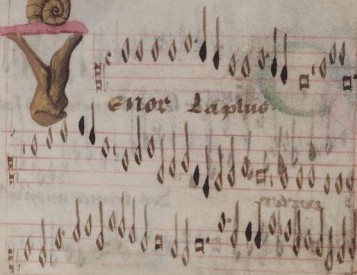 enor laplus